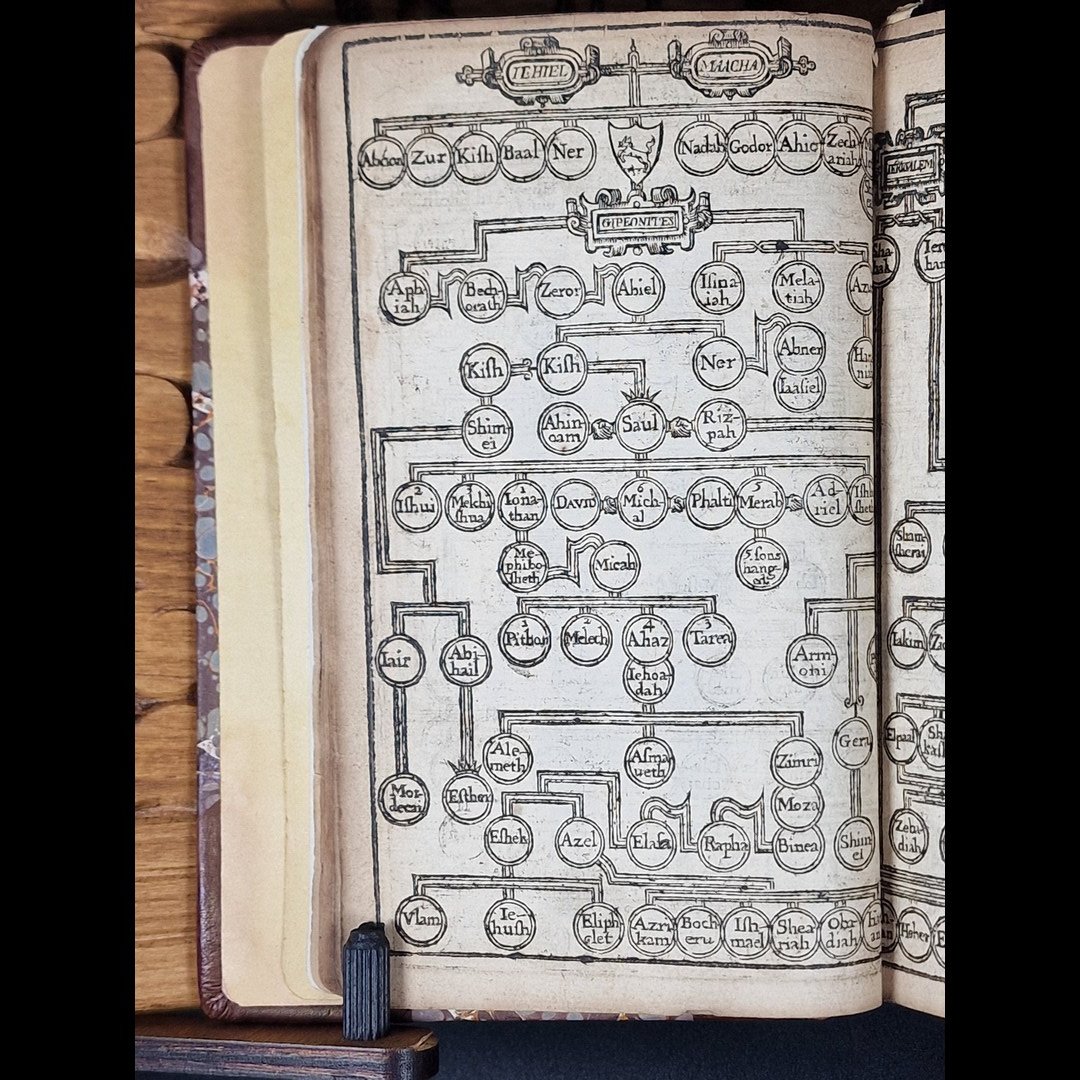 IEHIEL
MAACHA
Abdon
Zur
Kiſh
Baal
Ner
Nadab
Godor
Ahio
Zech
ariah
IERUSALEM
GIBEONITES
Aph
iah
Bech
orath
Zeror
Abiel
Iſma
iah
Mela-
tiah
Kiſh
Kiſh
Ner
Abner
Iaaſiel
Shim-
ei
Ahin
oam
Saul
Riz-
pah
2
Iſhui
3
Melchi
ſhua
1
Iona-
than
DAVID
6
Mich-
al
Phalti
5
Merab
Ad-
riel
Me
phibo-
ſheth
Micah
5. ſons
hang-
ed
Sham-
ſherai
1
Pithon
2
Melech
4
Ahaz
3
Tarea
Iair
Abi-
hail
Iehoa-
dah
Armoni
Iakim
Ale-
meth
Aſma-
ueth
Zimri
Gera
Elpaal
Mor-
decai
Eſther
Moza
Eſhek
Azel
Elaſa
Rapha
Binea
Shim
ei
Zeba
diah
Vlam
Ie-
huſh
Eliph
elet
Azri
kam
Boch
eru
Iſh-
mael
Shea
riah
Oba
diah
Heber